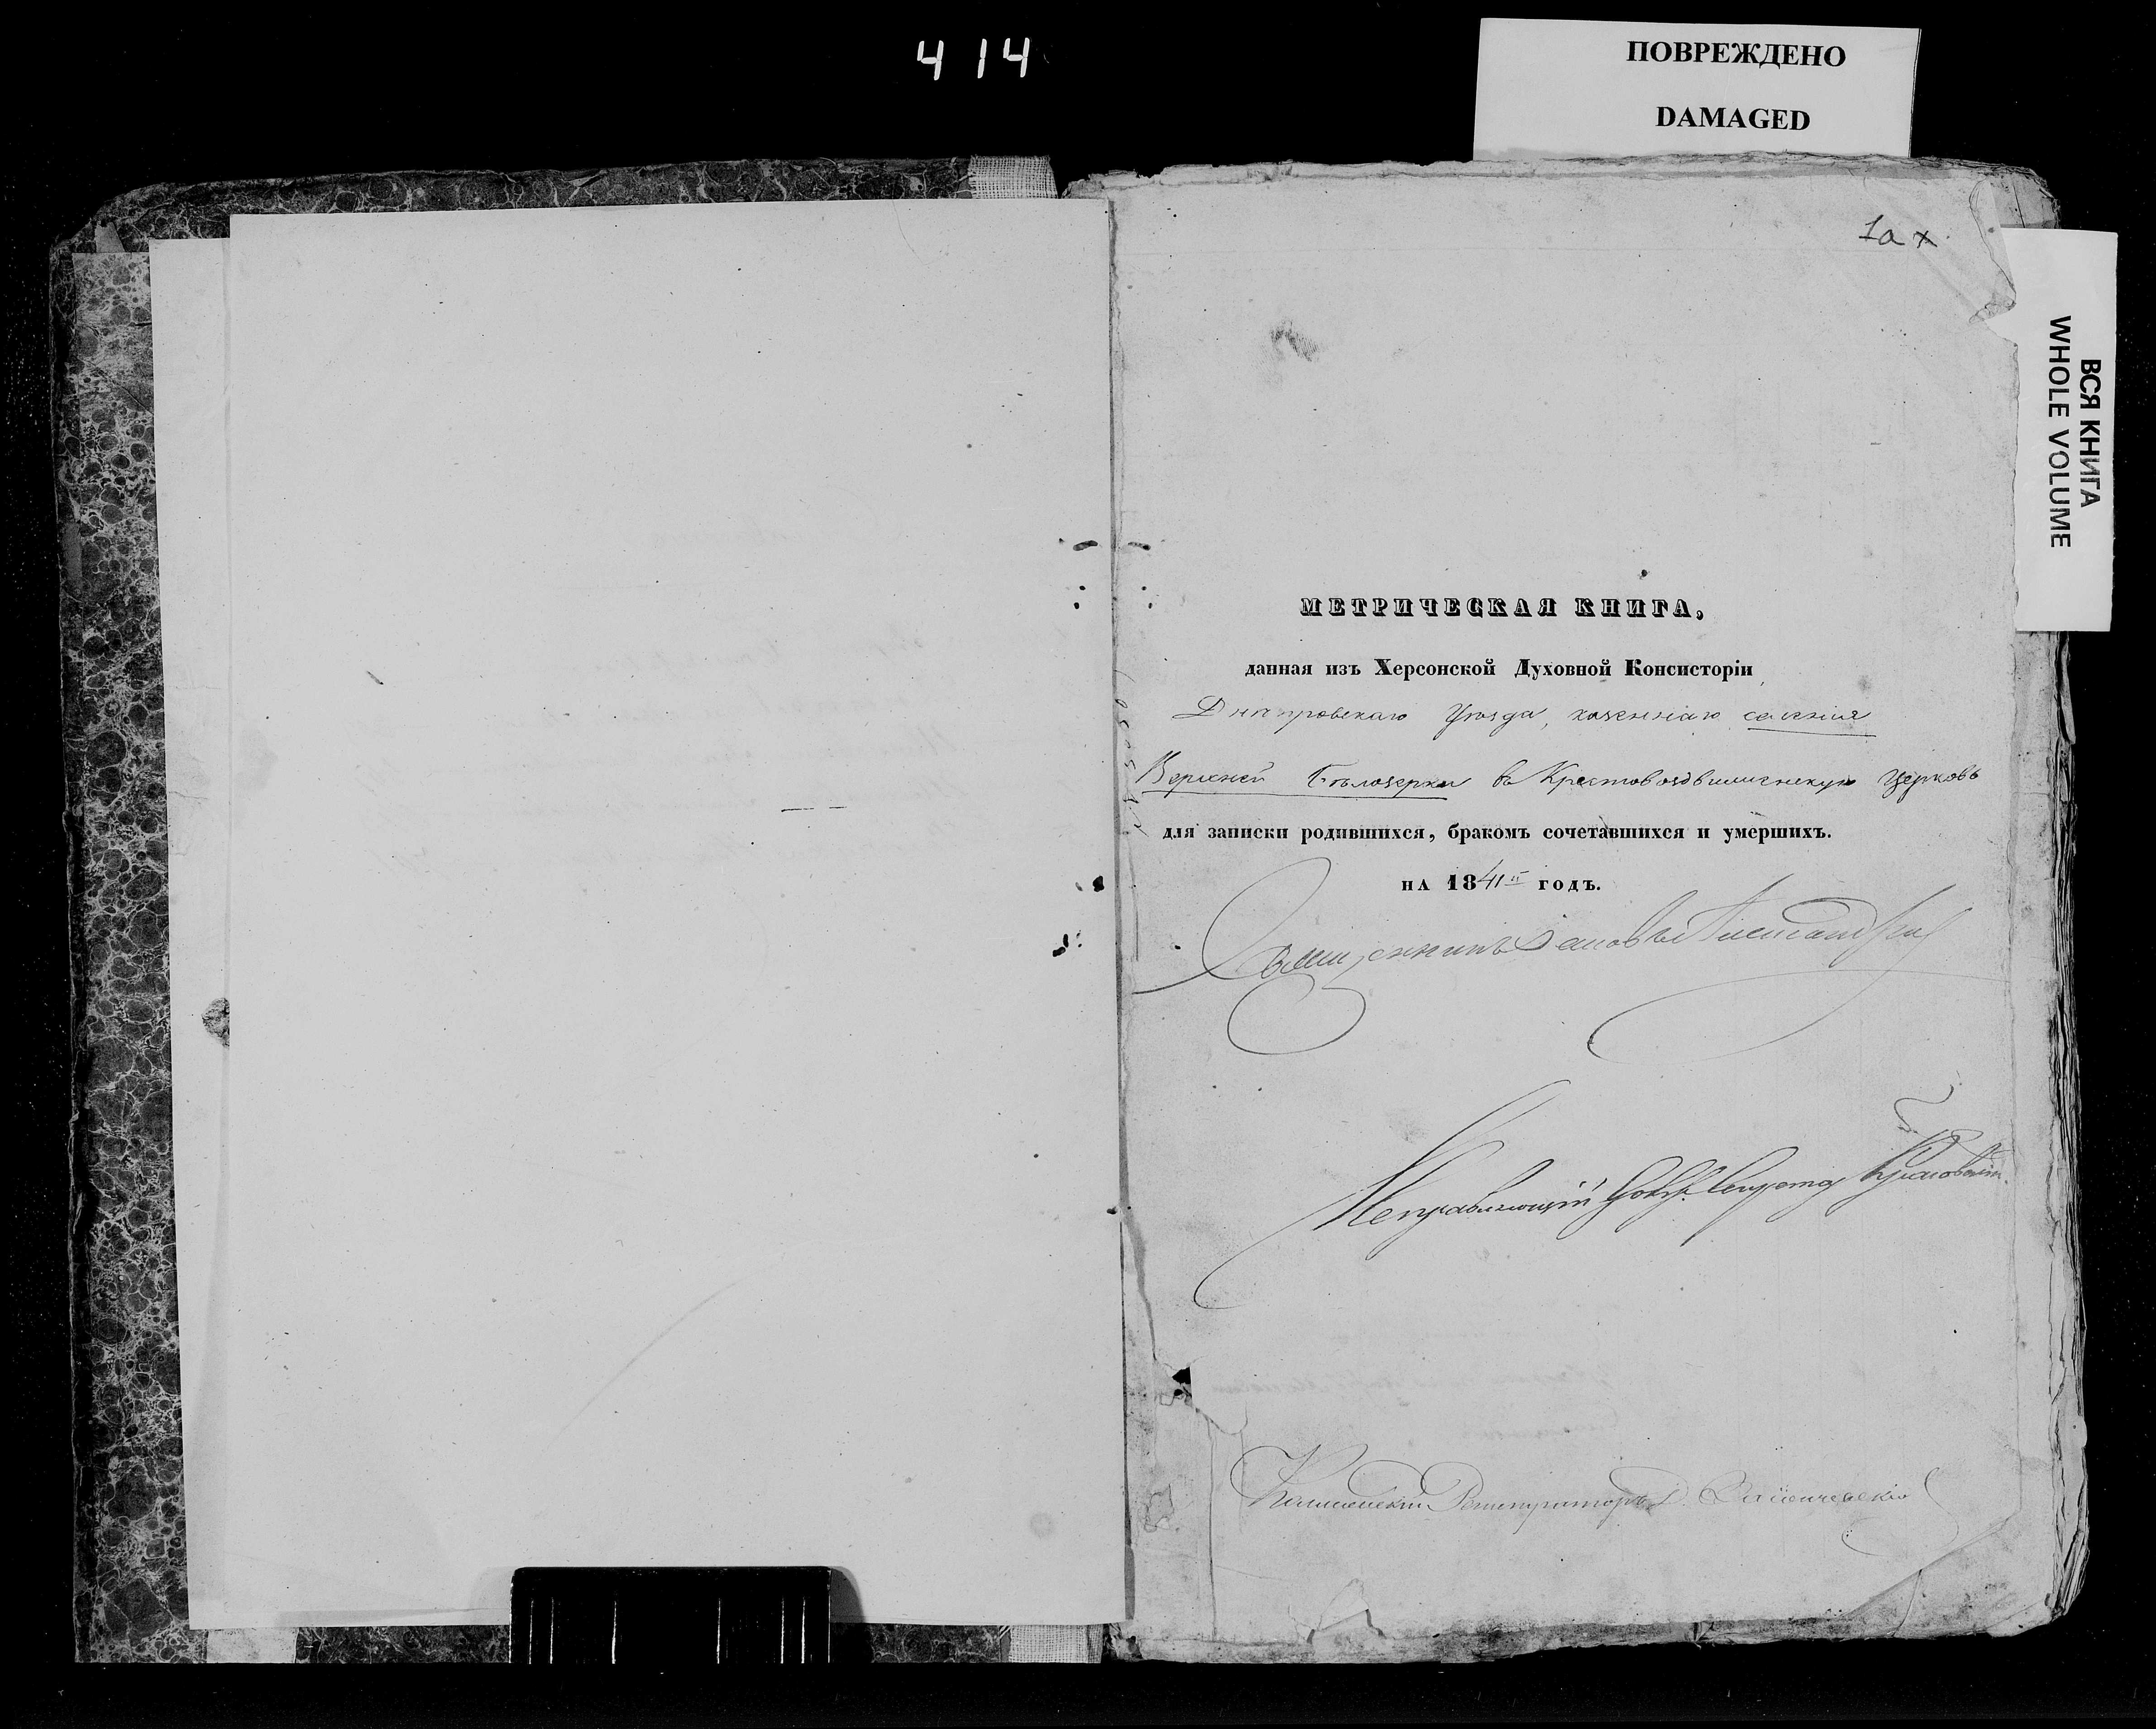 414
ПОВРЕЖДЕНО
DAMAGED
1а х
ВСЯ КНИГА
WHOLE VOLUME
МЕТРИЧЕСКАЯ КНИГА,
данная изъ Херсонской Духовной Консисторіи
Днѣпровскаго Уѣзда, казеннаго селенія
Верхней Бѣлозерки въ Крестовоздвиженскую Церковь
для записки родившихся, бракомъ сочетавшихся и умершихъ.
НА 1841й ГОДЪ.
Священникъ
Исправляющій
Регистраторъ